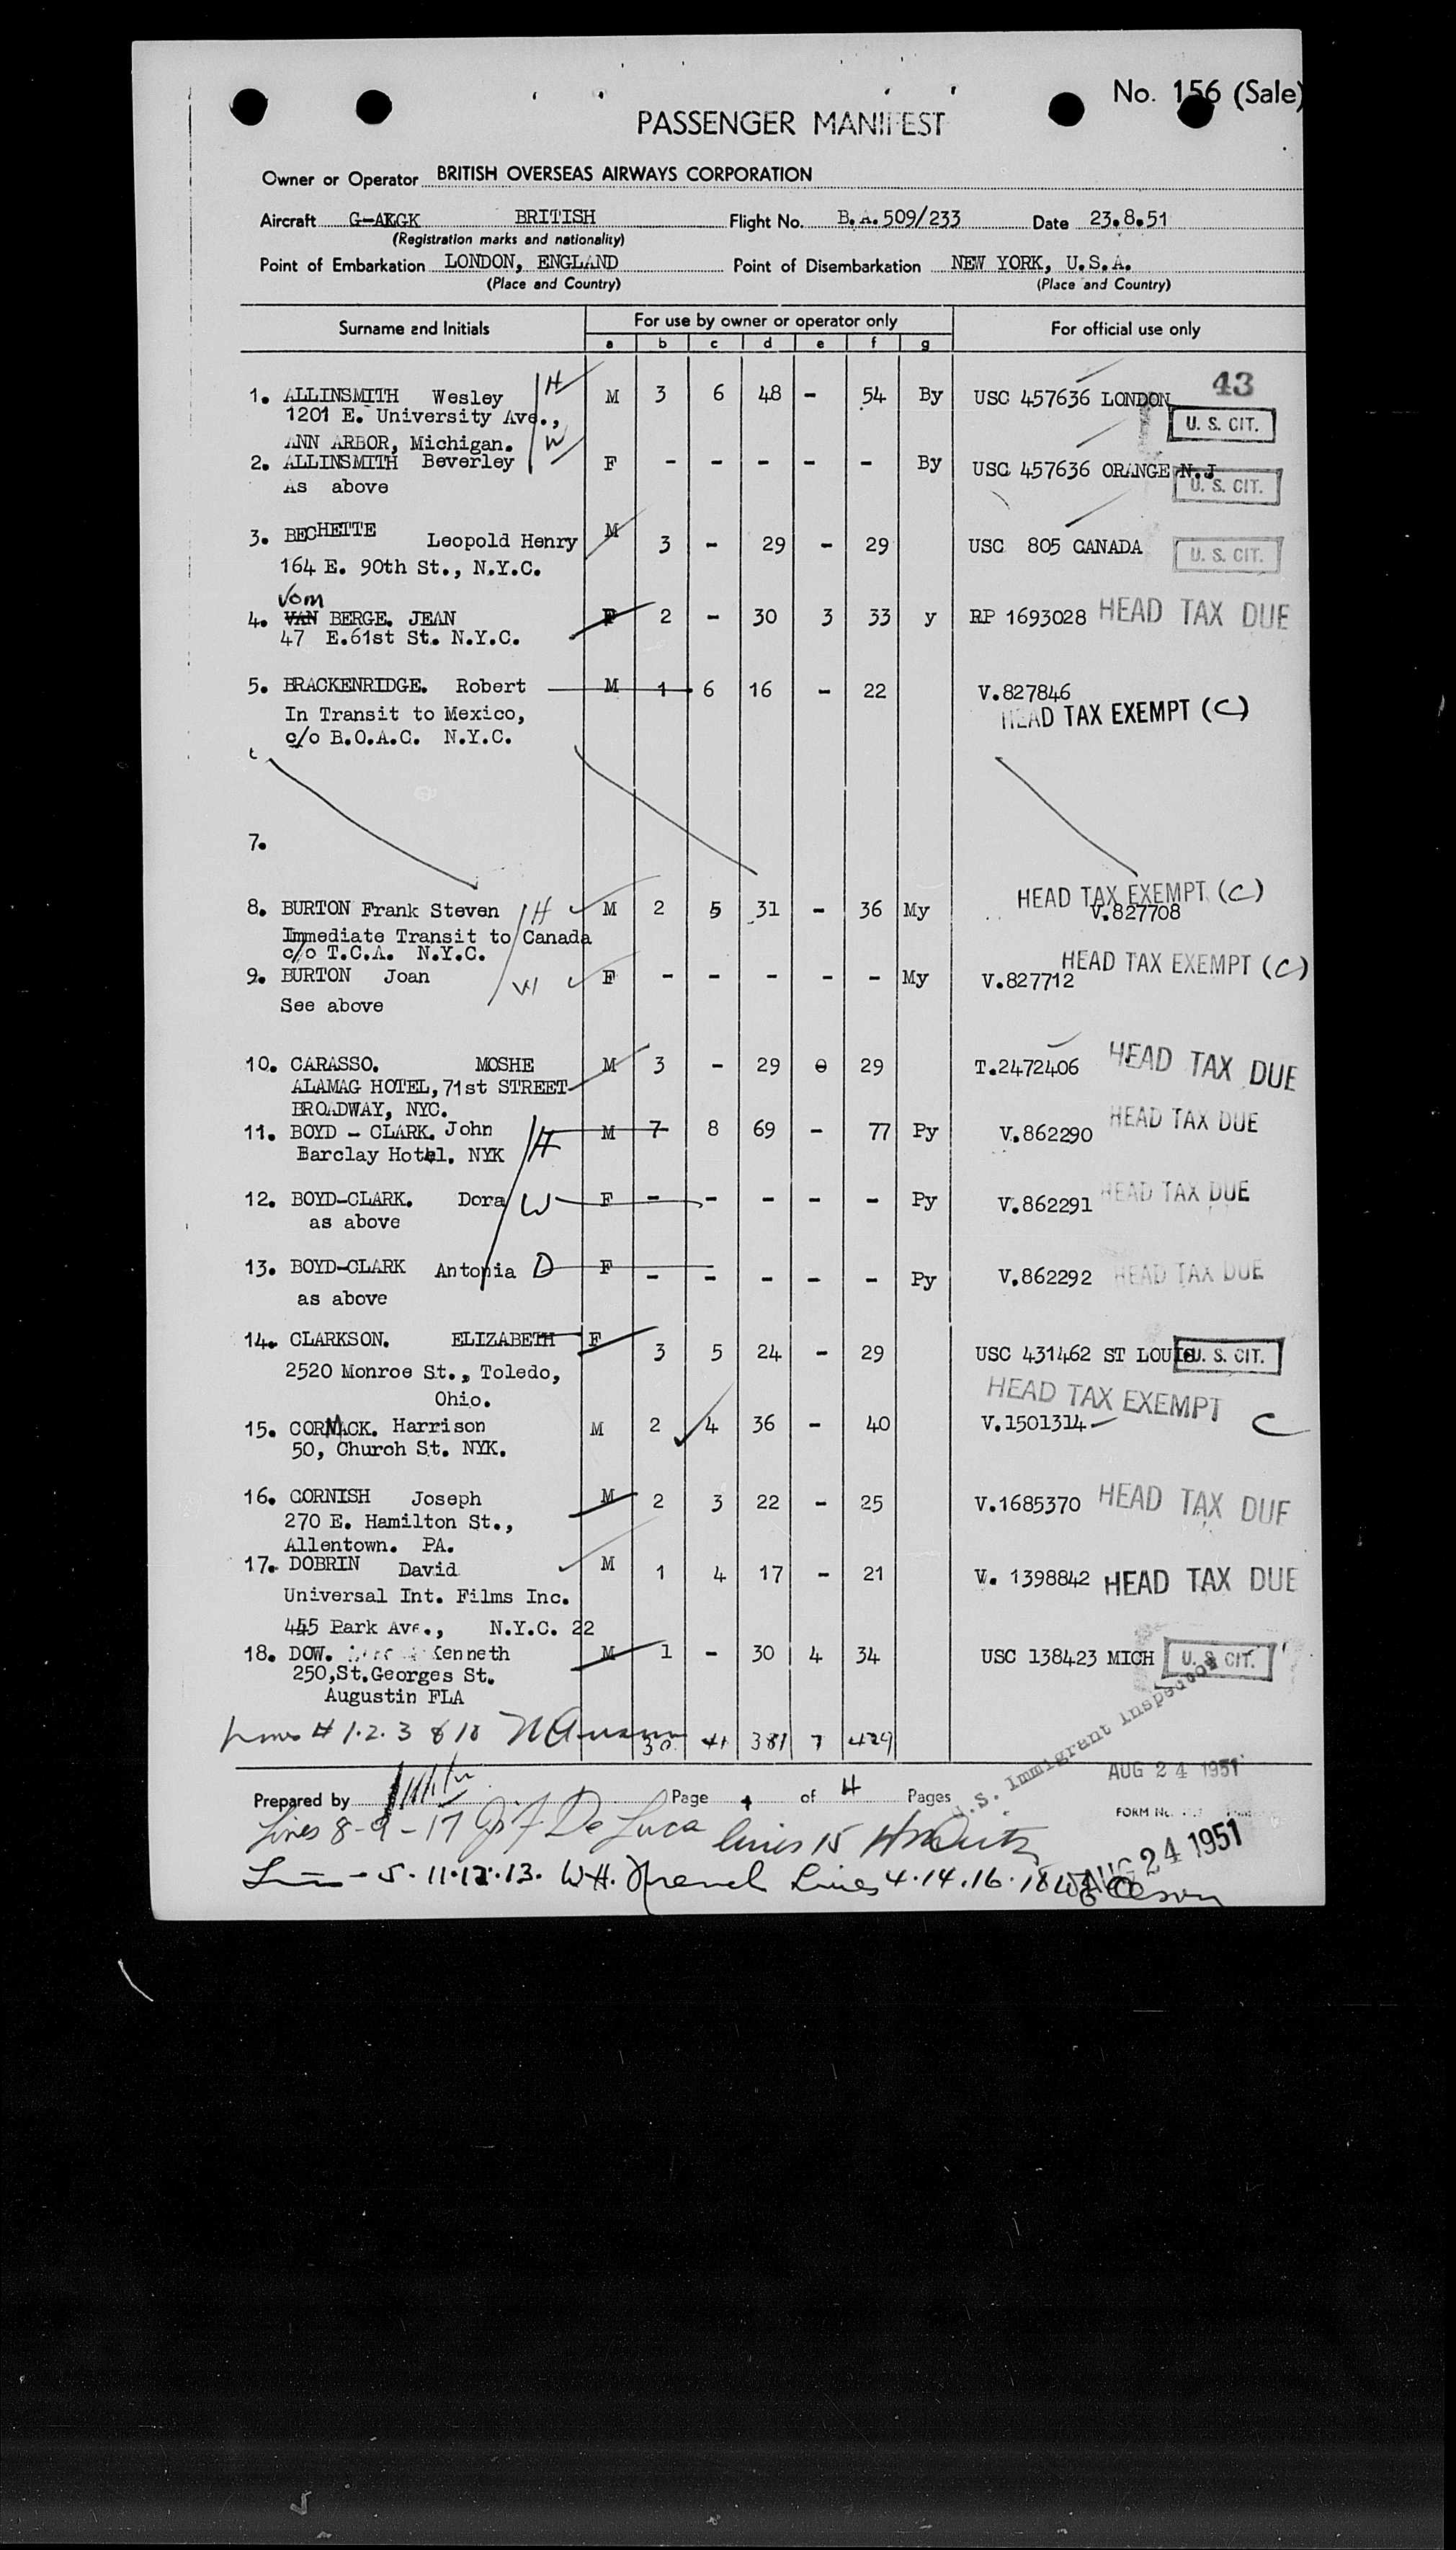 No. 156 (Sale)
PASSENGER MANIFEST
Owner or Operator BRITISH OVERSEAS AIRWAYS CORPORATION
Aircraft G-ALGK BRITISH Flight No. B.A.509/233 Date 23.8.51
(Registration marks and nationality)
Point of Embarkation LONDON, ENGLAND Point of Disembarkation NEW YORK, U.S.A.
(Place and Country) (Place and Country)
Surname and Initials For use by owner or operator only For official use only
a b c d e f g
43
1. ALLINSMITH Wesley H M 3 6 48 - 54 By USC 457636 LONDON
1201 E. University Ave., U. S. CIT.
ANN ARBOR, Michigan. W
2. ALLINSMITH Beverley F - - - - - By USC 457636 ORANGE N.J
As above U. S. CIT.
3. BECHETTE Leopold Henry M 3 - 29 - 29 USC 805 CANADA U. S. CIT.
164 E. 90th St., N.Y.C.
Vom
4. VAN BERGE. JEAN F 2 - 30 3 33 y RP 1693028 HEAD TAX DUE
47 E.61st St. N.Y.C.
5. BRACKENRIDGE. Robert M 1 6 16 - 22 V.827846
In Transit to Mexico, HEAD TAX EXEMPT (C)
c/o B.O.A.C. N.Y.C.
7.
HEAD TAX EXEMPT (C)
8. BURTON Frank Steven H M 2 5 31 - 36 My V.827708
Immediate Transit to Canada
c/o T.C.A. N.Y.C. HEAD TAX EXEMPT (C)
9. BURTON Joan W F - - - - - My V.827712
See above
10. CARASSO. MOSHE M 3 - 29 0 29 T.2472406 HEAD TAX DUE
ALAMAG HOTEL, 71st STREET
BROADWAY, NYC.
11. BOYD - CLARK. John H M 7 8 69 - 77 Py V.862290 HEAD TAX DUE
Barclay Hotel. NYK
12. BOYD-CLARK. Dora W F - - - - - Py V.862291 HEAD TAX DUE
as above
13. BOYD-CLARK Antonia D F - - - - - Py V.862292 HEAD TAX DUE
as above
14. CLARKSON. ELIZABETH F 3 5 24 - 29 USC 431462 ST LOUIS U. S. CIT.
2520 Monroe St., Toledo,
Ohio. HEAD TAX EXEMPT C
15. CORMACK. Harrison M 2 4 36 - 40 V.1501314
50, Church St. NYK.
16. CORNISH Joseph M 2 3 22 - 25 V.1685370 HEAD TAX DUE
270 E. Hamilton St.,
Allentown. PA.
17. DOBRIN David M 1 4 17 - 21 V. 1398842 HEAD TAX DUE
Universal Int. Films Inc.
445 Park Ave., N.Y.C. 22
18. DOW. Kenneth M 1 - 30 4 34 USC 138423 MICH U. S. CIT.
250,St.Georges St.
Augustin FLA
Lines # 1.2.3 & 10 30 41 381 7 429
U.S. Immigrant Inspector
AUG 24 1951
Prepared by Page of 4 Pages
FORM No.
Lines 8-9-17 De Luca lines 15
AUG 24 1951
5.11.12.13. W.H. French Lines 4.14.16.18 Olson